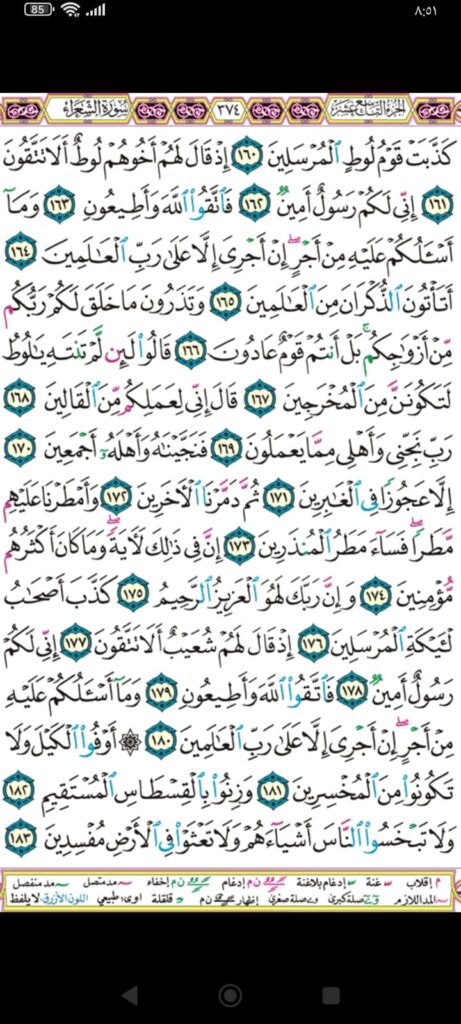 85 ٨:٥١
الجزء التاسع عشر ٣٧٤ سورة الشعراء
كَذَّبَتْ قَوْمُ لُوطٍ ٱلْمُرْسَلِينَ ١٦٠ إِذْ قَالَ لَهُمْ أَخُوهُمْ لُوطٌ أَلَا تَتَّقُونَ
١٦١ إِنِّى لَكُمْ رَسُولٌ أَمِينٌ ١٦٢ فَٱتَّقُوا۟ ٱللَّهَ وَأَطِيعُونِ ١٦٣ وَمَآ
أَسْـَٔلُكُمْ عَلَيْهِ مِنْ أَجْرٍ ۖ إِنْ أَجْرِىَ إِلَّا عَلَىٰ رَبِّ ٱلْعَـٰلَمِينَ ١٦٤
أَتَأْتُونَ ٱلذُّكْرَانَ مِنَ ٱلْعَـٰلَمِينَ ١٦٥ وَتَذَرُونَ مَا خَلَقَ لَكُمْ رَبُّكُم
مِّنْ أَزْوَٰجِكُم ۚ بَلْ أَنتُمْ قَوْمٌ عَادُونَ ١٦٦ قَالُوا۟ لَئِن لَّمْ تَنتَهِ يَـٰلُوطُ
لَتَكُونَنَّ مِنَ ٱلْمُخْرَجِينَ ١٦٧ قَالَ إِنِّى لِعَمَلِكُم مِّنَ ٱلْقَالِينَ ١٦٨
رَبِّ نَجِّنِى وَأَهْلِى مِمَّا يَعْمَلُونَ ١٦٩ فَنَجَّيْنَـٰهُ وَأَهْلَهُۥٓ أَجْمَعِينَ ١٧٠
إِلَّا عَجُوزًا فِى ٱلْغَـٰبِرِينَ ١٧١ ثُمَّ دَمَّرْنَا ٱلْـَٔاخَرِينَ ١٧٢ وَأَمْطَرْنَا عَلَيْهِم
مَّطَرًا ۖ فَسَآءَ مَطَرُ ٱلْمُنذَرِينَ ١٧٣ إِنَّ فِى ذَٰلِكَ لَـَٔايَةً ۖ وَمَا كَانَ أَكْثَرُهُم
مُّؤْمِنِينَ ١٧٤ وَإِنَّ رَبَّكَ لَهُوَ ٱلْعَزِيزُ ٱلرَّحِيمُ ١٧٥ كَذَّبَ أَصْحَـٰبُ
لْـَٔيْكَةِ ٱلْمُرْسَلِينَ ١٧٦ إِذْ قَالَ لَهُمْ شُعَيْبٌ أَلَا تَتَّقُونَ ١٧٧ إِنِّى لَكُمْ
رَسُولٌ أَمِينٌ ١٧٨ فَٱتَّقُوا۟ ٱللَّهَ وَأَطِيعُونِ ١٧٩ وَمَآ أَسْـَٔلُكُمْ عَلَيْهِ
مِنْ أَجْرٍ ۖ إِنْ أَجْرِىَ إِلَّا عَلَىٰ رَبِّ ٱلْعَـٰلَمِينَ ١٨٠ ۞ أَوْفُوا۟ ٱلْكَيْلَ وَلَا
تَكُونُوا۟ مِنَ ٱلْمُخْسِرِينَ ١٨١ وَزِنُوا۟ بِٱلْقِسْطَاسِ ٱلْمُسْتَقِيمِ ١٨٢
وَلَا تَبْخَسُوا۟ ٱلنَّاسَ أَشْيَآءَهُمْ وَلَا تَعْثَوْا۟ فِى ٱلْأَرْضِ مُفْسِدِينَ ١٨٣
م إقلاب غنة إدغام بلاغنة ن م إدغام ن م إخفاء مد متصل مد منفصل
المد اللازم صلة كبرى صلة صغرى إظهار ن م قلقلة اوى: طبيعي اللون الأزرق: لا يلفظ